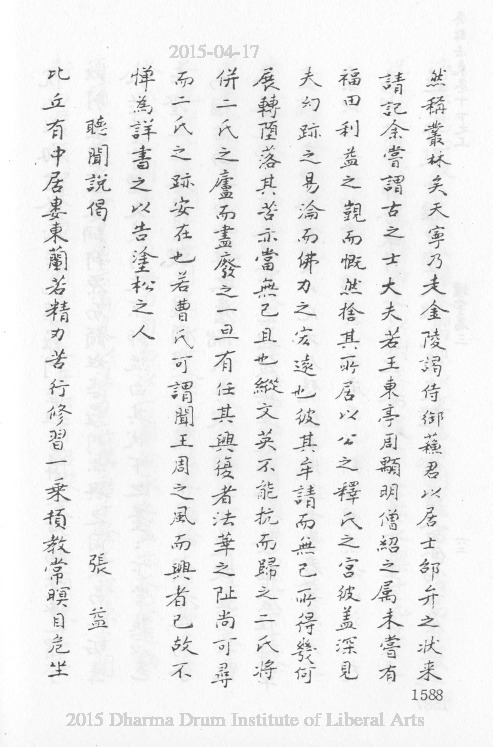 2015-04-17
然稱叢林矣天寧乃走金陵謁侍御蘓君以居士邵弁之狀来
請記余嘗謂古之士大夫若王東亭周顒明僧紹之属未嘗有
福田利益之覬而慨然捨其所居以公之釋氏之宫彼盖深見
夫幻跡之易淪而佛力之宏遠也彼其牟請而無已所得幾何
展轉墮落其苦亦當無已且也縱文英不能抗而歸之二氏將
併二氏之廬而盡廢之一旦有任其興復者法華之阯尚可尋
而二氏之跡安在也若曹氏可謂聞王周之風而興者已故不
憚為詳書之以告塗松之人
聴聞說偈 張益
比丘有中居婁東蘭若精力苦行修習一乗頓教常瞑目危坐
1588
2015 Dharma Drum Institute of Liberal Arts